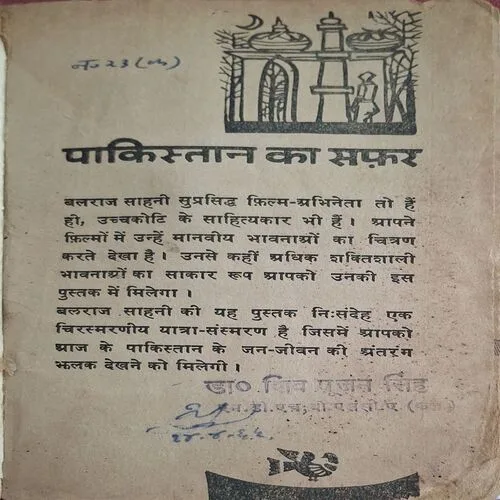 नं० 23 (क)
पाकिस्तान का सफ़र
बलराज साहनी सुप्रसिद्ध फ़िल्म-अभिनेता तो हैं
ही, उच्चकोटि के साहित्यकार भी हैं। आपने
फ़िल्मों में उन्हें मानवीय भावनाओं का चित्रण
करते देखा है। उनसे कहीं अधिक शक्तिशाली
भावनाओं का साकार रूप आपको उनकी इस
पुस्तक में मिलेगा।
बलराज साहनी की यह पुस्तक निःसंदेह एक
चिरस्मरणीय यात्रा-संस्मरण है जिसमें आपको
आज के पाकिस्तान के जन-जीवन की अंतरंग
झलक देखने को मिलेगी।
डा० शिव पूजन सिंह